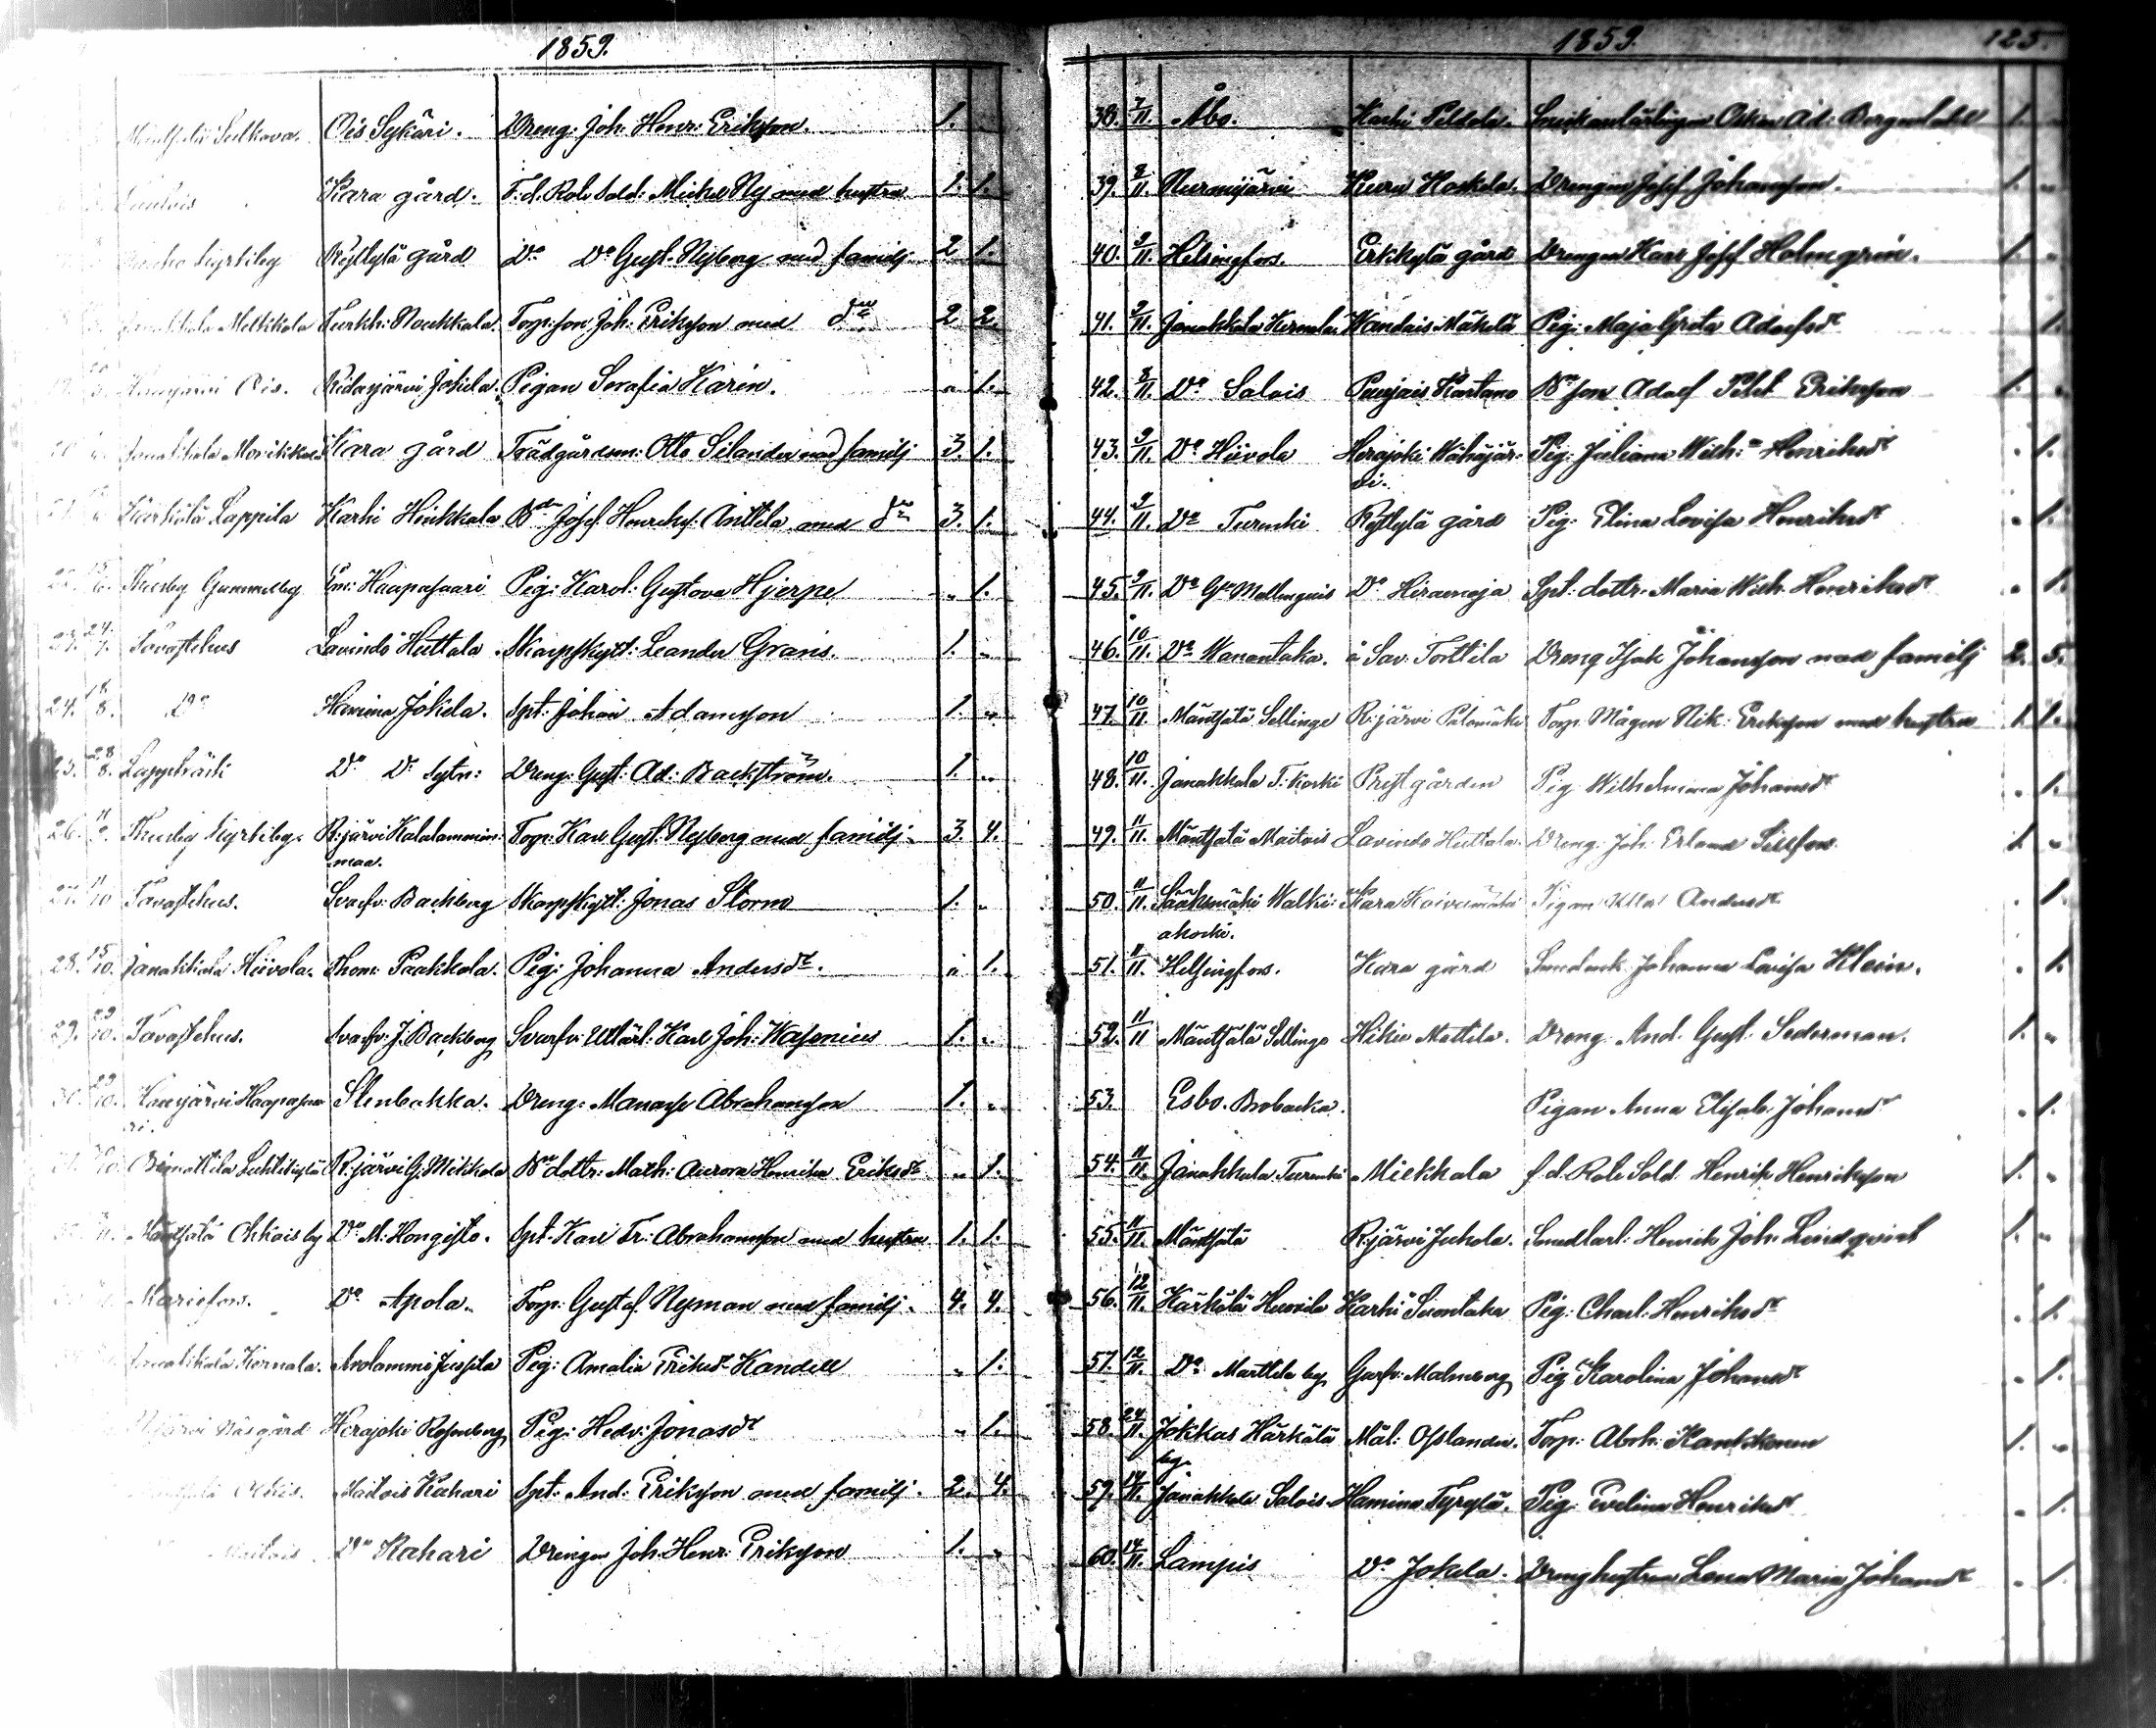 1859.
Mäntsälä Sulkava. Ois Sykäri. Dreng: Joh. Henr: Erikson. 1.
Kara gård. F.d. Rote Sold: Mickel Ny med hustru 1. 1.
Kyrkby Ryttylä gård Do Do Gust. Nyberg med familj. 2. 1.
Janakkala Melkkola Turkh: Noukkala. Torp:son Joh: Erikson med do 2. 2.
Hausjärvi Ois. Ridasjärvi Jokela. Pigan Serafia Karin. „ 1.
Janakkala Monikkala Kara gård Trädgårdsm: Otto Silander med familj 3. 1.
Kärkölä Lappila Karhi Heikkala Bdn Josef Henrikss. Anttila med do 3. 1.
22. Thusby Gammelby Haapasaari Pig: Karol: Gustava Hjerpe „ 1.
23. 24/7. Tavastehus Lavindo Huttala Skarpskytt: Leander Granis. 1. „
24. 18/8. Do Hamina Jokela. Spt: Johan Adamson 1. „
25. 28/8. Lappträsk Do Do Sytn: Dreng: Gust: Ad: Backström. 1. „
26. 11/9. Thusby Kyrkby. R:järvi Kalalammin:
maa. Torp: Karl Gust. Nyberg med familj. 3. 4.
27. 11/10 Tavastehus. Svarfv: Backberg Skarpskytt: Jonas Storm 1. „
28. 15/10. Janakkala Hiivola. Thom: Paakkala. Pig: Johanna Andersdr. „ 1.
29. 29/10. Tavastehus. Svarfv: J. Backberg Svarfv: Utlärl: Karl Joh: Wasenius 1. „
30. 29/10. Hausjärvi Haapasaa
ri. Stenbakka. Dreng: Manasse Abrahamson 1. „
Orimattila R:järvi G: Mikkola Bn dottr: Math: Aurora Henrika Eriksdr „ 1.
Mäntsälä Ohkois by Do M: Hongisto. Spt. Karl Fr: Abrahamson med hustru 1. 1.
Mariefors. Do Apola. Torp: Gustaf Nyman med familj. 4. 4.
Janakkala Kernala. Arolammi Jussila Pig: Amalia Eriksdr Kandell „ 1.
Näsgård Herajoki Rosenberg Pig: Hedv: Jonasdr „ 1.
Maitois Kahari Spt. And: Erikson med familj. 2. 4.
Maitois Do Kahari Drengen Joh. Henr: Erikson 1. „
1859. 125.
38. 7/11. Åbo. Karhi Peldola. Oskar Ad: 1. „
39. 8/11. Nurmijärvi Kuru Haskela. Drengen Josef Johanson. 1. „
40. 9/11. Helsingfors. Erkkylä gård Drengen Karl Josef Holmgrén. 1. „
41. 9/11. Janakkala Kernala Wandais Mäkelä Pig: Maja Greta Adolfsdr 1.
42. 8/11. Do Salois Puujais Kartano Bn son Adolf Erikson 1. „
43. 9/11. Do Hiivola Herajoki Wähäjär-
vi. Pig: Juliana Wilh:a Henriksdr „ 1.
44. 9/11. Do Turenki Ryttylä gård Pig: Elina Lovisa Henriksdr „ 1.
45. 9/11. Do Do Spt: dottr. Maria Wilh. Henriksdr „ 1.
46. 10/11. Do Wanantaka. Sav: Torttila Dreng Isak Johanson med familj 2. 5.
47. 10/11 Mäntsälä Sellinge R:järvi Palomäki Torp. Mågen Nik: Erikson med hustru 1. 1.
48. 10/11. Janakkala T: koski Prestgården Pig Wilhelmina Johansdr „ 1.
49. 11/11. Mäntsälä Maitois Lavindo Huttala. Dreng: Joh. Erland 1. „
50. 11/11. Sääksmäki Walkia:
akoski. Kara Koivumäki Pigan Ulla Andersdr „ 1.
51. 11/11. Helsingfors. Kara gård Johanna Lovisa Klein. „ 1.
52. 11/11 Mäntsälä Sellinge Hikie Mattila. Dreng. And. Gust. Sederman. 1. „
53. Esbo. Brobacka. Pigan Anna Elisab. Johansdr „ 1.
54. 11/11. Janakkala Turenki Miekkala f.d. Rote Sold. Henrik Henrikson 1. „
55. 11/11. Mäntsälä R:järvi Juhola. Smedlärl: Henrik Joh. Lindqvist 1. „
56. 12/11. Kärkölä Huovila Karhi Suontaka Pig: Charl: Henriksdr „ 1.
57. 12/11. Do Marttila by Garfv: Malmberg Pig Karolina Johansdr „ 1.
58. 24/11. Jokkas Härkälä
by. Mål: Osslander. Torp: Abrh: Kankkonen 1. „
59. 14/11. Janakkala Salois Hamina Tyrylä. Pig Evelina Henriksdr „ 1.
60. 14/11. Lampis Do Jokela. Dreng hustrun Lena Maria Johansdr „ 1.